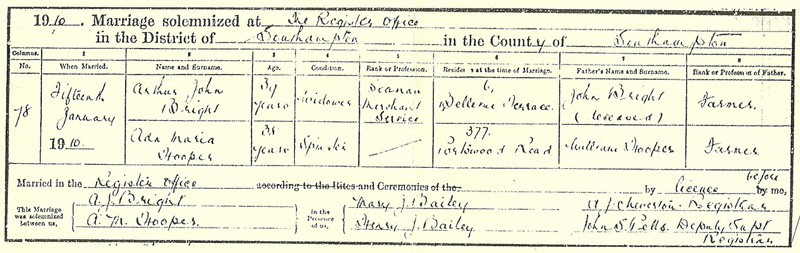 1910. Marriage solemnized at The Register Office
in the District of Southampton in the County of Southampton
Columns. 1 2 3 4 5 6 7 8
No. When Married. Name and Surname. Age. Condition. Rank or Profession. Residence at the time of Marriage. Father's Name and Surname. Rank or Profession of Father.
78 Fifteenth January 1910. Arthur John Bright 39 years Widower Seaman Merchant Service 6, Bellevue Terrace. John Bright (deceased) Farmer
Ada Maria Hooper 38 years Spinster 377. Portswood Road William Hooper Farmer
Married in the Register Office according to the Rites and Ceremonies of the by licence before by me,
This Marriage was solemnized between us, A. J. Bright A. M. Hooper. in the Presence of us, Mary J. Bailey Henry J. Bailey Registrar John S. Deputy Supt Registrar